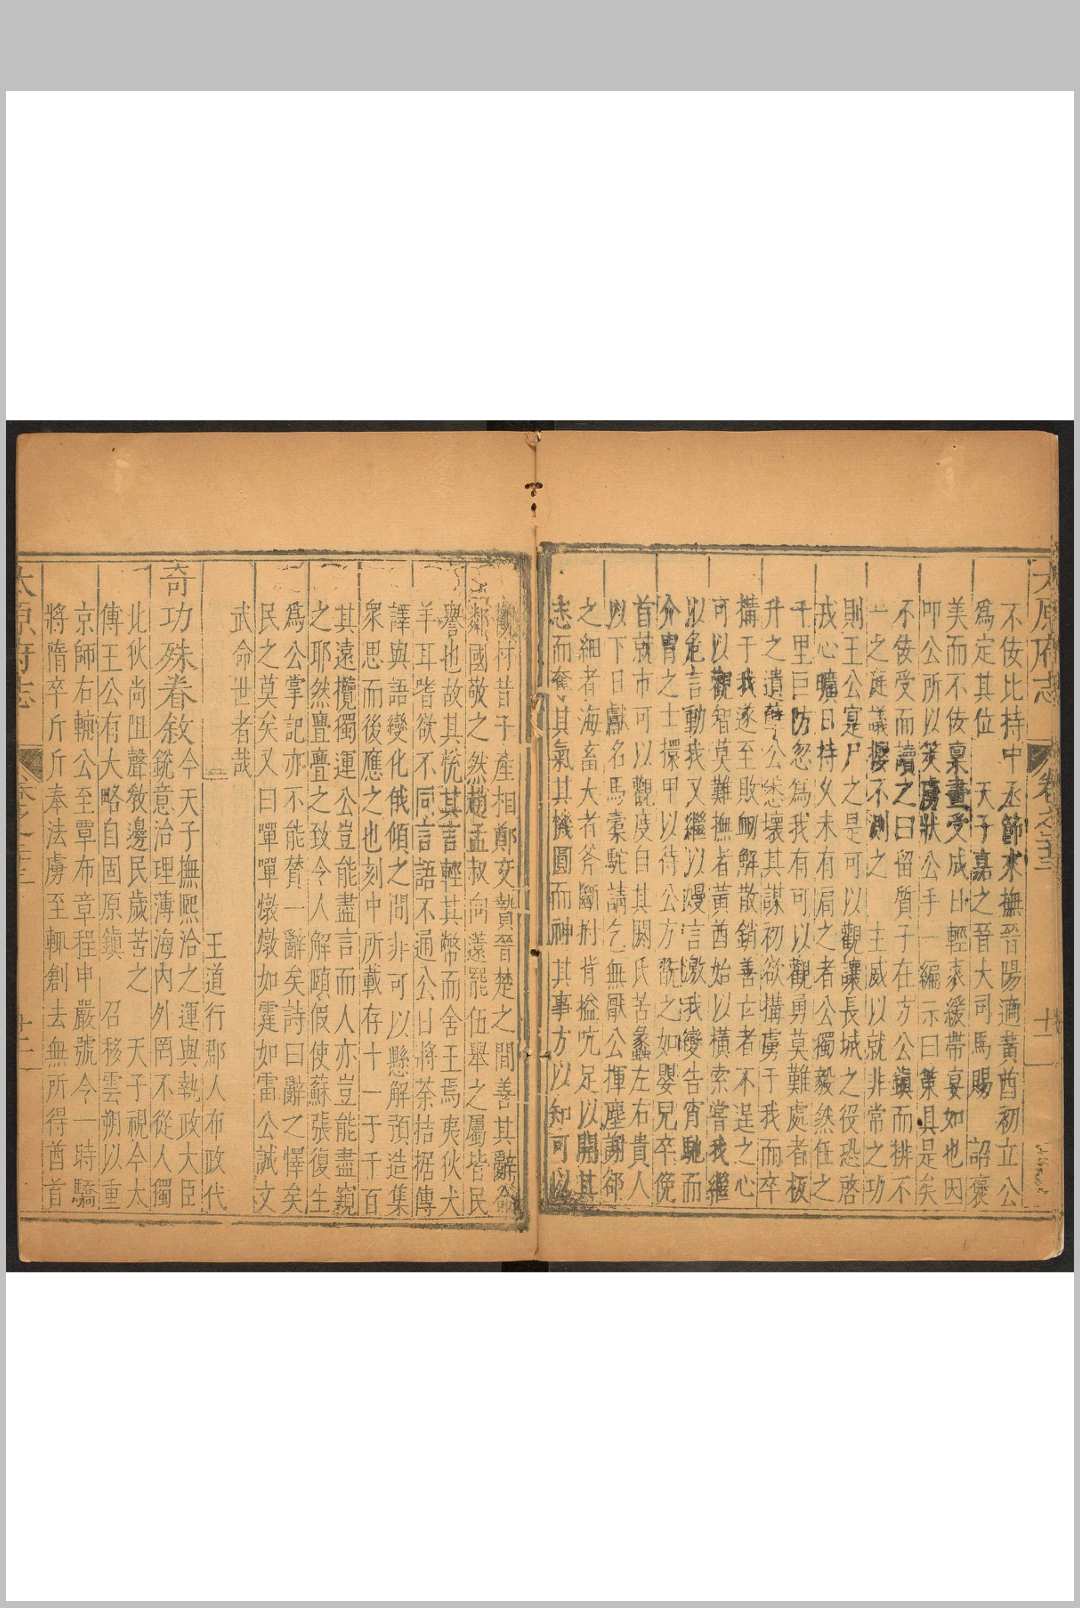 太原府志 卷之二十三 十一
不佞比持中丞節來撫晉陽適蕃酋初立公
為定其位 天子嘉之晉大司馬賜 詔褒
美而不佞稟畫受成日輕裘緩帶宴如也因
叩公所以笑虜狀公手一編示曰業具是矣
不佞受而讀之曰留質子在方公鎮而排不
一之廷議撄不測之 主威以就非常之功
則王公寔尸之是可以觀讓長城之役恐啓
戎心曠日持久未有肩之者公獨毅然任之
千里巨防忽為我有可以觀勇莫難處者板
升之遺孽公悉壞其謀初欲搆虜于我而卒
搆于我遂至敗衂解散銷善亡者不逞之心
可以觀智莫難撫者黃酋始以橫索嘗我繼
以危言動我又繼以謾言激我變告宵馳而
介冑之士擐甲以待公方視之如嬰兒卒俛
首就市可以觀度自其閼氏苦蠡左右貴人
以下日獻名馬橐駝請乞無厭公揮麈謝郤
之細者海畜大者斧斷刺肯搤吭足以開其
志而奪其氣其機圓而神其事方以知可以
觀何昔子產相鄭交贄晉楚之間善其辭命
鄰國敬之然趙孟叔向薳罷伍舉之屬皆民
譽也故其悅其言輕其幣而舍王焉夷狄犬
羊耳皆欲不同言語不通公日將荼拮据傳
譯與語變化俄傾之間非可以懸解預造集
眾思而後應之也刻中所載存十一于千百
其遠攬獨運公豈能盡言而人亦豈能盡窺
之耶然亹亹之致令人解頤假使蘇張復生
為公掌記亦不能贊一辭矣詩曰辭之懌矣
民之莫矣又曰嘽嘽燉燉如霆如雷公誠文
武命世者哉
奇功殊眷敘 王道行郡人布政代
今天子撫熙洽之運與執政大臣
銳意治理薄海內外罔不從人獨
北狄尚阻聲敎邊民歲苦之 天子視今太
傅王公有大略自固原鎮 召移雲朔以重
京師右轅公至覃布章程申嚴號令一時驕
將隋卒斤斤奉法虜至輒創去無所得酋首
太原府志 卷之二十三 十二